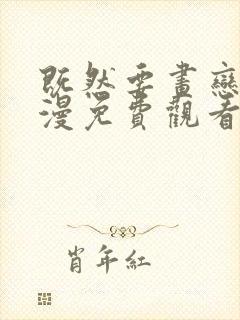 既然要畫戀
漫免費觀看
肖年紅